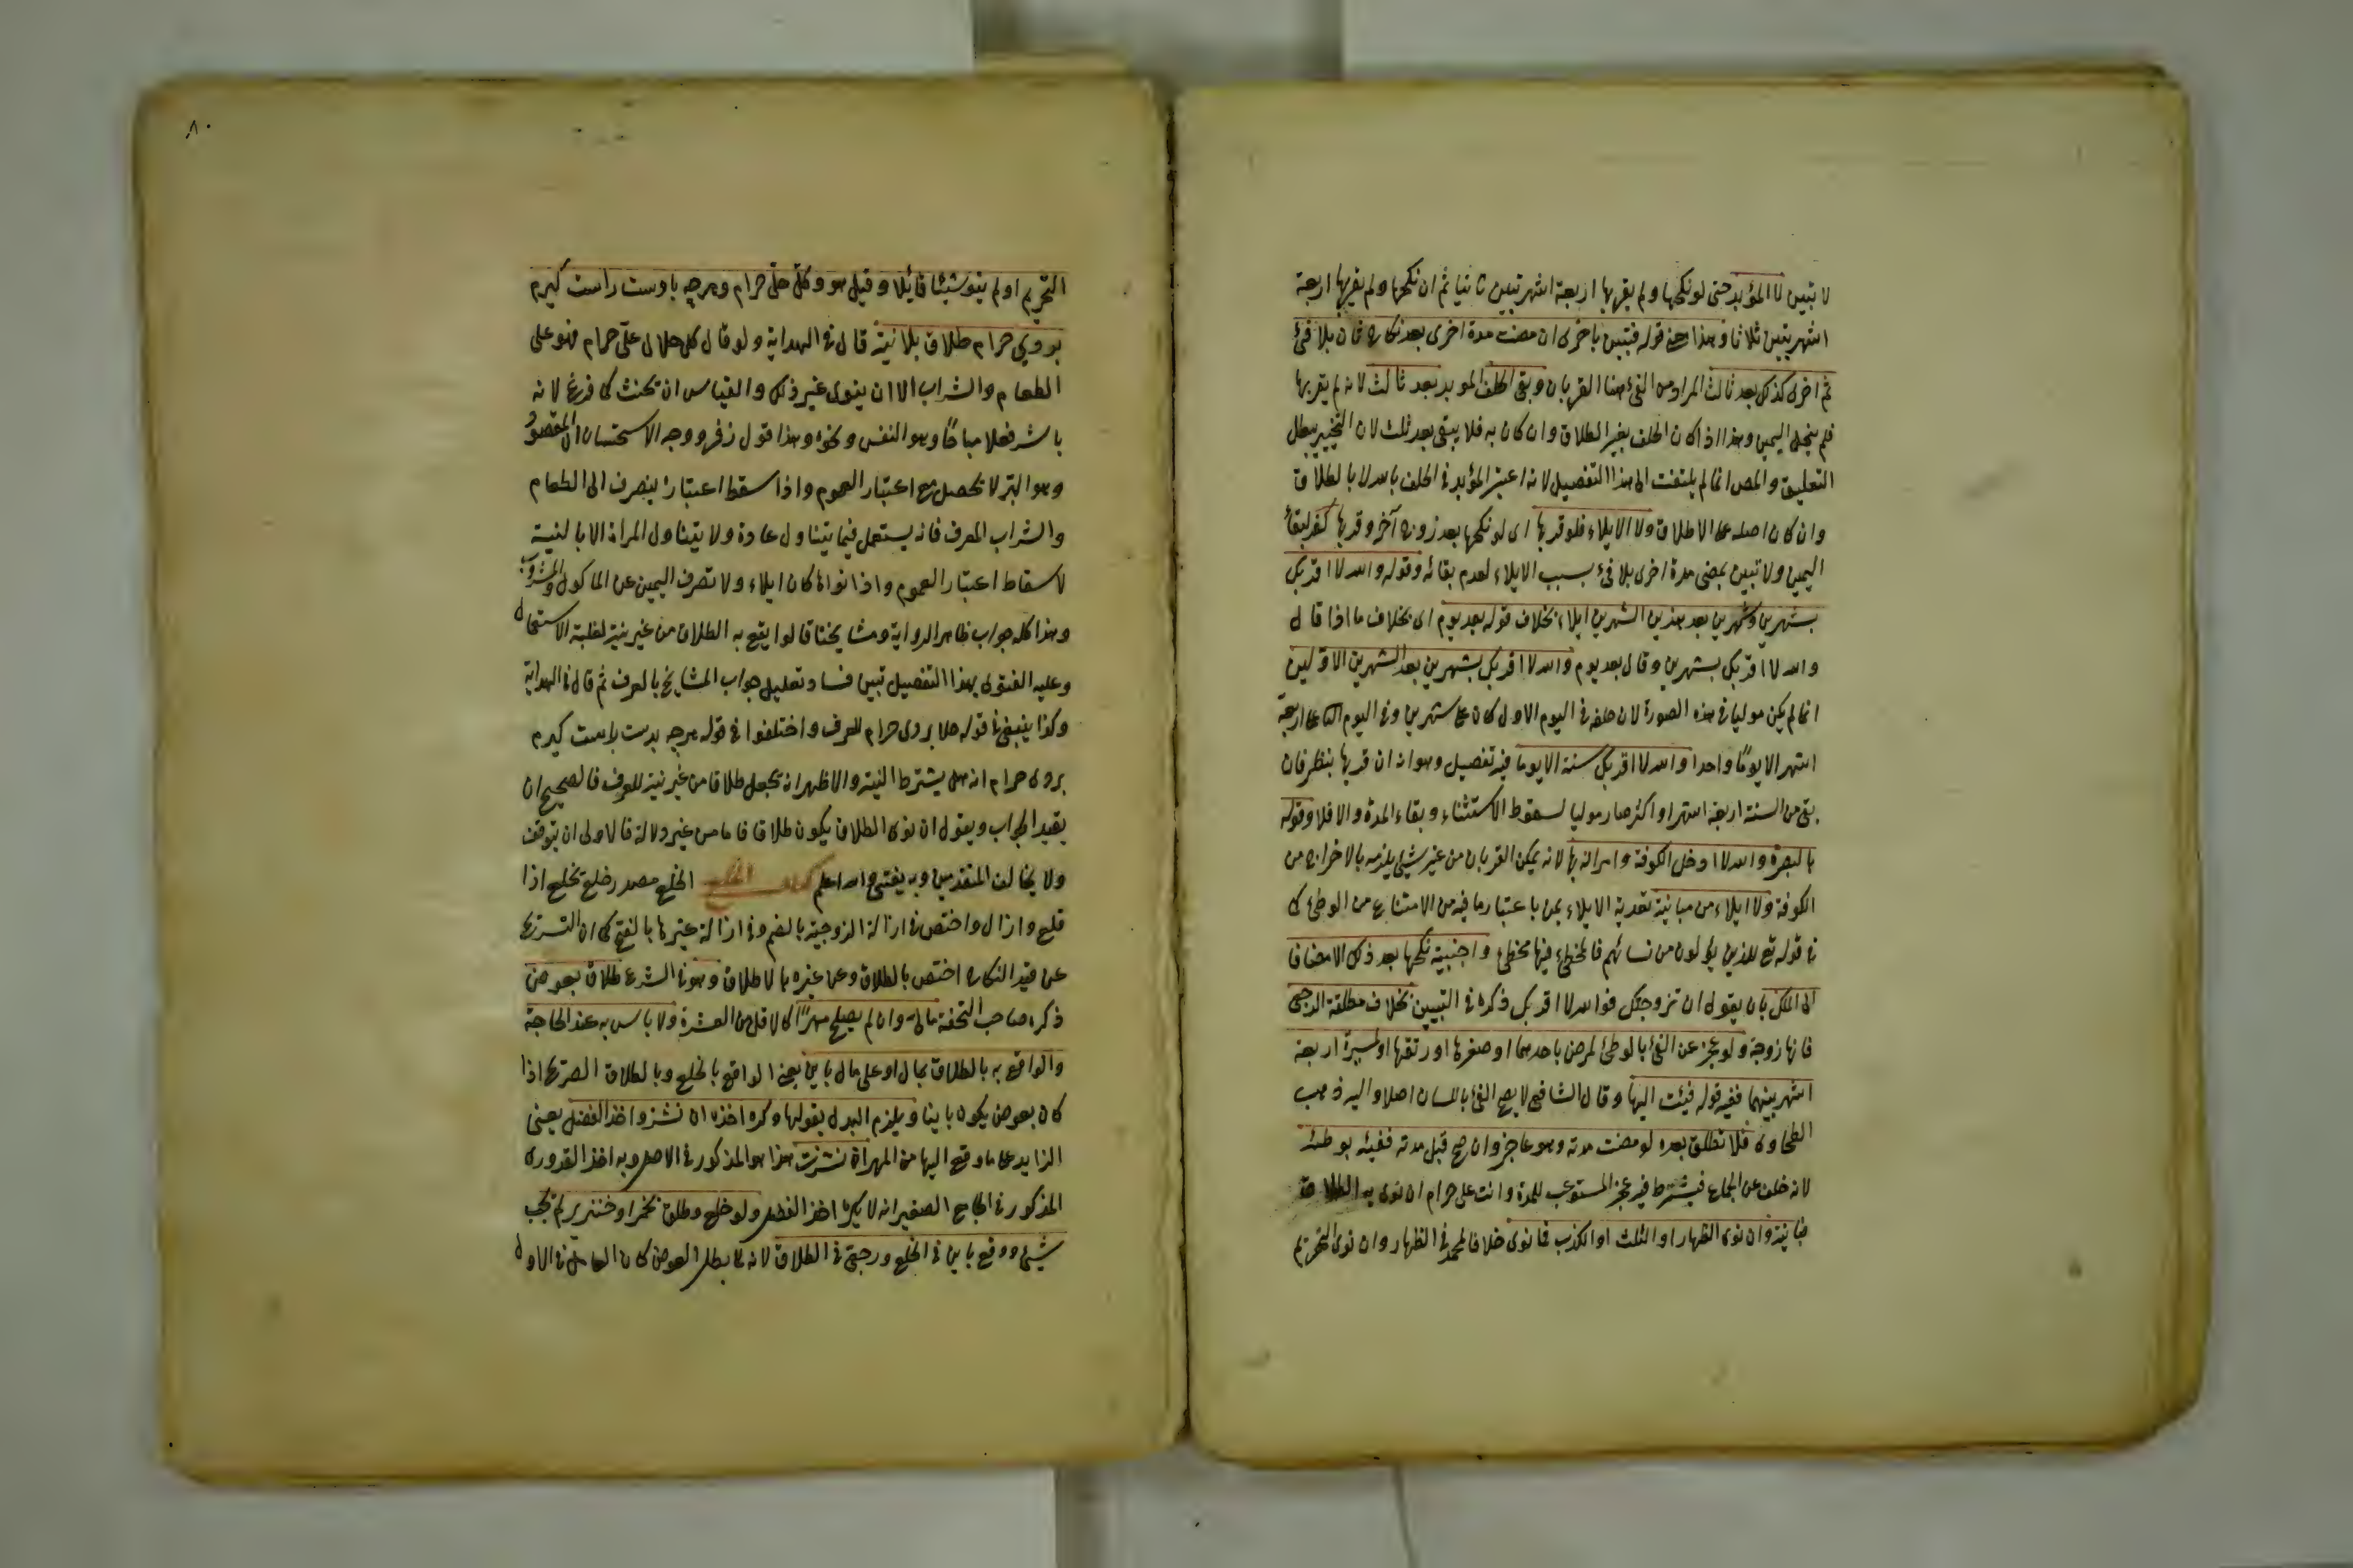 لا تبين لا المؤبد حتى لو نكحها ولم يقربها اربعة اشهر تبين ثانيا ثم ان نكحها ولم يقربها اربعة
اشهر تبين ثلاثا وهذا قوله فتبين باخرى ان مضت مدة اخرى بعد نكاح ثان بلا فئ
ثم اخرى كذلك بعد ثالث المراد من الفئ هنا القربان وبقى الحلف المؤبد بعد ثالث لانه لم يقربها
فلم ينحل اليمين وهذا اذا كان الحلف بغير الطلاق وان كان به فلا يبقى بعد ثلث لان التنجيز يبطل
التعليق والمص انما لم يلتفت الى هذا التفصيل لانه اعتبر المؤبد فى الحلف بالله لا بالطلاق
وان كان اصله على الاطلاق ولا الايلاء فلو قربها اى لو نكحها بعد زوج آخر وقربها كفر لبقاء
اليمين ولا تبين بمضى مدة اخرى بلا فئ بسبب الايلاء لعدم بقائه وقوله والله لا اقربك
بشهرين وشهرين بعد هذين الشهرين ايلاء بخلاف قوله بعد يوم اى بخلاف ما اذا قال
والله لا اقربك بشهرين وقال بعد يوم والله لا اقربك بشهرين بعد الشهرين الاولين
انما لم يكن موليا فى هذه الصورة لان حلفه فى اليوم الاول كان على شهرين وفى اليوم الثانى على اربعة
اشهر الا يوما واحدا والله لا اقربك سنة الا يوما فيه تفصيل وهو انه ان قربها ينظر فان
بقى من السنة اربعة اشهر او اكثر صار موليا لسقوط الاستثناء وبقاء المدة والا فلا وقوله
بالبصرة والله لا ادخل الكوفة وامراته بها لانه يمكن القربان من غير شئ يلزمه بالاخراج من
الكوفة ولا ايلاء من مبانية تعدية الايلاء بمن باعتبار ما فيه من الامتناع من الوطئ كما
فى قوله تع للذين يؤلون من نسائهم واجنبية نكحها بعد ذلك الا مضافا
الى الملك بان يقول ان تزوجتك فوالله لا اقربك ذكره فى التبيين بخلاف مطلقة الرجعى
فانها زوجة ولو عجز عن الفئ بالوطئ لمرض باحدهما او صغرها او رتقها او لمسيرة اربعة
اشهر بينهما ففيئه قوله فيئت اليها وقال الشافعى لا يصح الفئ باللسان اصلا واليه ذهب
الطحاوى فلا تطلق بعده لو مضت مدته وهو عاجز وان صح قبل مدته ففيئه بوطئه
لانه خلف عن الجماع فيشترط فيه عجز المستوعب للمدة وانت على حرام ان نوى به الطلاق
فبائنة وان نوى الظهار او الثلث او الكذب فما نوى خلافا لمحمد فى الظهار وان نوى التحريم
٨٠
التحريم او لم ينو شيئا فايلاء وقيل هو وكل حل على حرام وهرچه بدست راست گيرم
بر وى حرام طلاق بلا نية قال فى الهداية ولو قال كل حلال على حرام فهو على
الطعام والشراب الا ان ينوى غير ذلك والقياس ان يحنث كما فرغ لانه
باشر فعلا مباحا وهو النفس ونحوه وهذا قول زفر ووجه الاستحسان ان المقصود
وهو البر لا يحصل مع اعتبار العموم واذا سقط اعتباره ينصرف الى الطعام
والشراب للعرف فانه يستعمل فيما يتناول عادة ولا يتناول المراة الا بالنية
لاسقاط اعتبار العموم واذا نواها كان ايلاء ولا تصرف اليمين عن الماكول والمشروب
وهذا كله جواب ظاهر الرواية ومشايخنا قالوا يقع به الطلاق من غير نية لغلبة الاستعمال
وعليه الفتوى بهذا التفصيل تبين فساد تعليل جواب المشايخ بالعرف ثم قال فى الهداية
وكذا ينبغى فى قوله حلال بروى حرام للعرف واختلفوا فى قوله هرچه بدست راست گيرم
بروى حرام انه هل يشترط النية والاظهر انه يجعل طلاقا من غير نية للعرف فالصحيح ان
يقيد الجواب ويقول ان نوى الطلاق يكون طلاقا فاما من غير دلالة فالاولى ان يتوقف
ولا يخالف المتقدمين وبه يفتى والله اعلم كتاب الخلع الخلع مصدر خلع يخلع اذا
قلع وازال واختص فى ازالة الزوجية بالضم وفى ازالة غيرها بالفتح كما ان التسريح
عن قيد النكاح اختص بالطلاق وعن غيره بالاطلاق وهو فى الشرع طلاق بعوض
ذكره صاحب التحفة مالى وان لم يصلح مهرا كالاقل من العشرة ولا باس به عند الحاجة
والواقع به بالطلاق بمال او على مال باين يعنى الواقع بالخلع وبالطلاق الصريح اذا
كان بعوض يكون باينا ويلزم البدل بقولها وكره اخذه ان نشز واخذ الفضل يعنى
الزايد على ما دفع اليها من المهر ان نشزت هذا هو المذكور فى الاصل وبه اخذ القدورى
المذكور فى الجامع الصغير انه لا يكره اخذ الفضل ولو خلع وطلق بخمر او خنزير لم يجب
شئ ووقع باين فى الخلع ورجعى فى الطلاق لانه لما بطل العوض كان العامل فى الاول